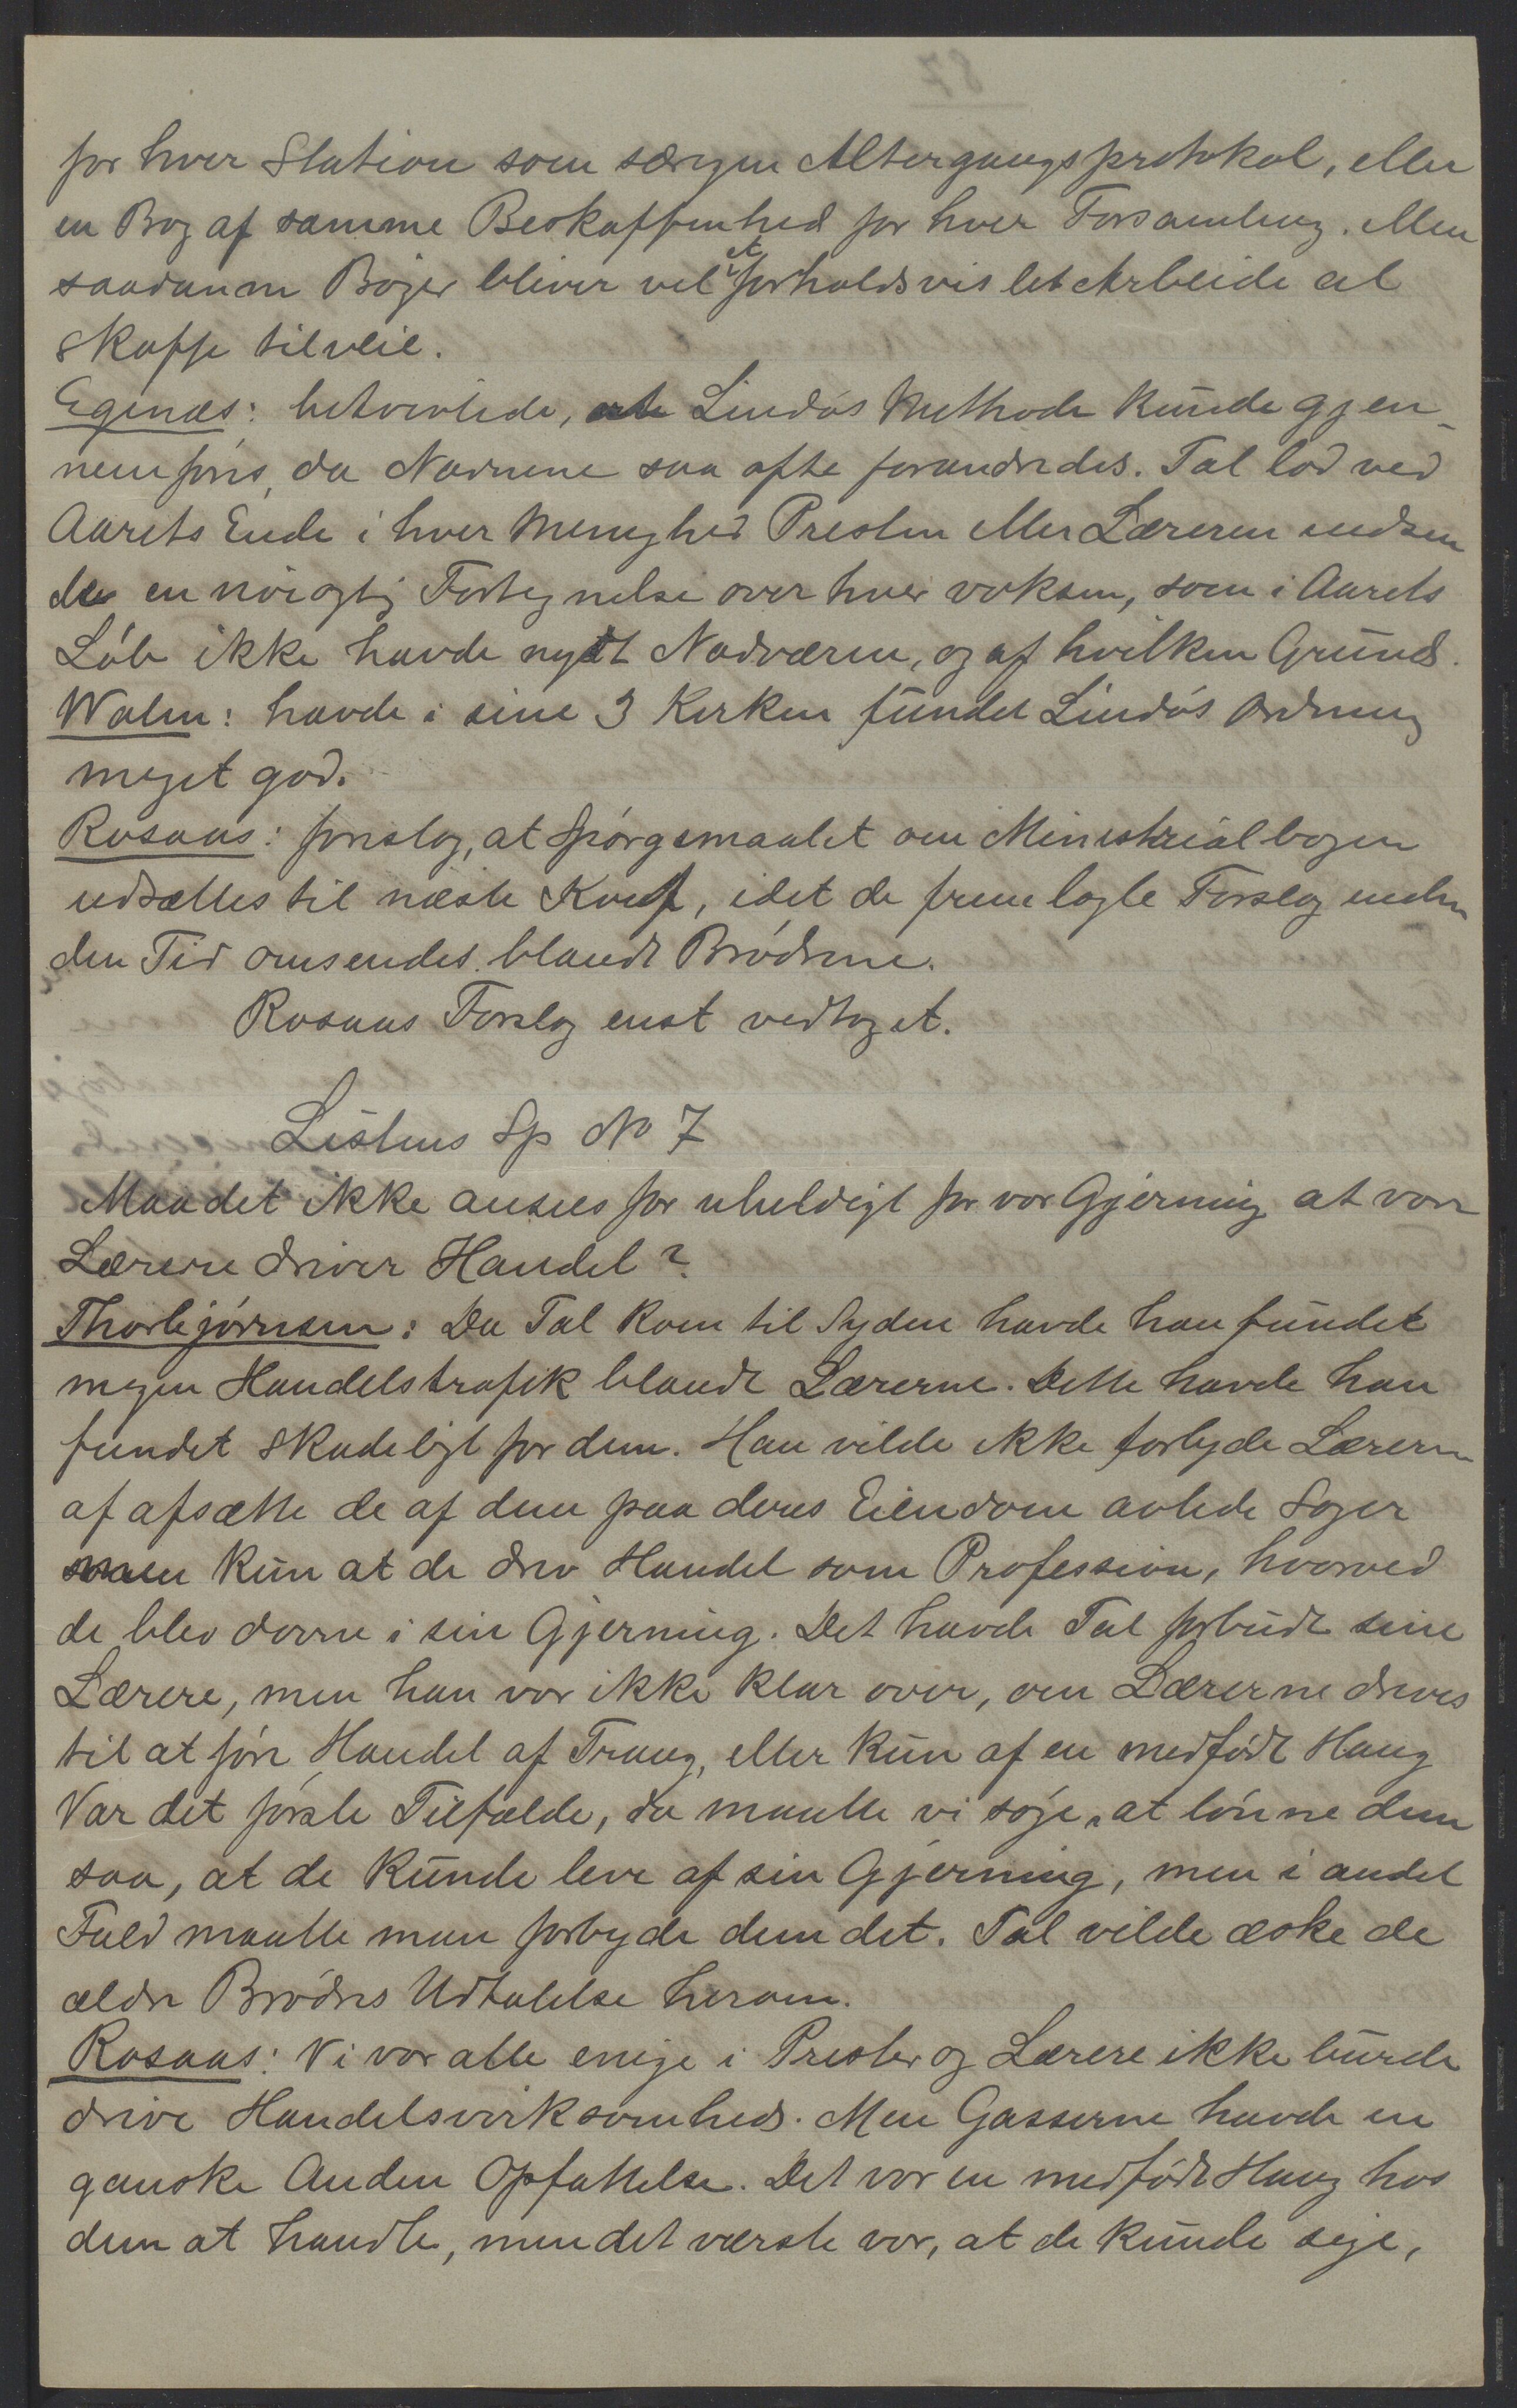 for hver Station som særegen Altergangsprotokol, eller
en Bog af samme Beskaffenhed for hver Forsamling. Men
saadanne Bøger bliver vel et forholdsvis let Arbeide at
skaffe tilveie.
Egenæs: betvivlede, at Lindøs Methode kunde gjen-
nemføres, da Navnene saa ofte forandredes. Tal lod ved
Aarets Ende i hver Menighed Presten eller Læreren indsen
de en nøiagtig Fortegnelse over hver voksen, som i Aarets
Løb ikke havde nydt Nadveren, og af hvilken Grund.
Walen: havde i sine 3 Kirker fundet Lindøs Ordning
meget god.
Rosaas: foreslog, at Spørgsmaalet om Ministerialbogen
udsættes til næste Konf, idet de fremlagte Forslag inden
den Tid omsendes blandt Brødrene.
Rosaas Forslag enst vedtaget.
Listuns Sp No 7
Maa det ikke ansees for uheldigt for vor Gjerning at vore
Lærere driver Handel?
Thorbjørnsen: Da Tal kom til Syden havde han fundet
megen Handelstrafik blandt Lærerne. Dette havde han
fundet skadeligt for dem. Han vilde ikke forbyde Lærerne
af afsætte de af dem paa deres Eiendom avlede Sager
men kun at de drev Handel som Profession, hvorved
de blev dovne i sin Gjerning. Det havde Tal forbudt sine
Lærere, men han var ikke klar over, om Lærerne drives
til at føre Handel af Trang, eller kun af en medfødt Hang
Var det første Tilfælde, da maatte vi søge, at lønne dem
saa, at de kunde leve af sin Gjerning, men i andet
Fald maatte man forbyde dem det. Tal vilde æske de
ældre Brødres Udtalelse herom.
Rosaas: Vi var alle enige i Prester og Lærere ikke burde
drive Handelsvirksomhed. Men Gasserne havde en
ganske Anden Opfattelse. Det var en medfødt Hang hos
dem at handle, men det værste var, at de kunde sige,